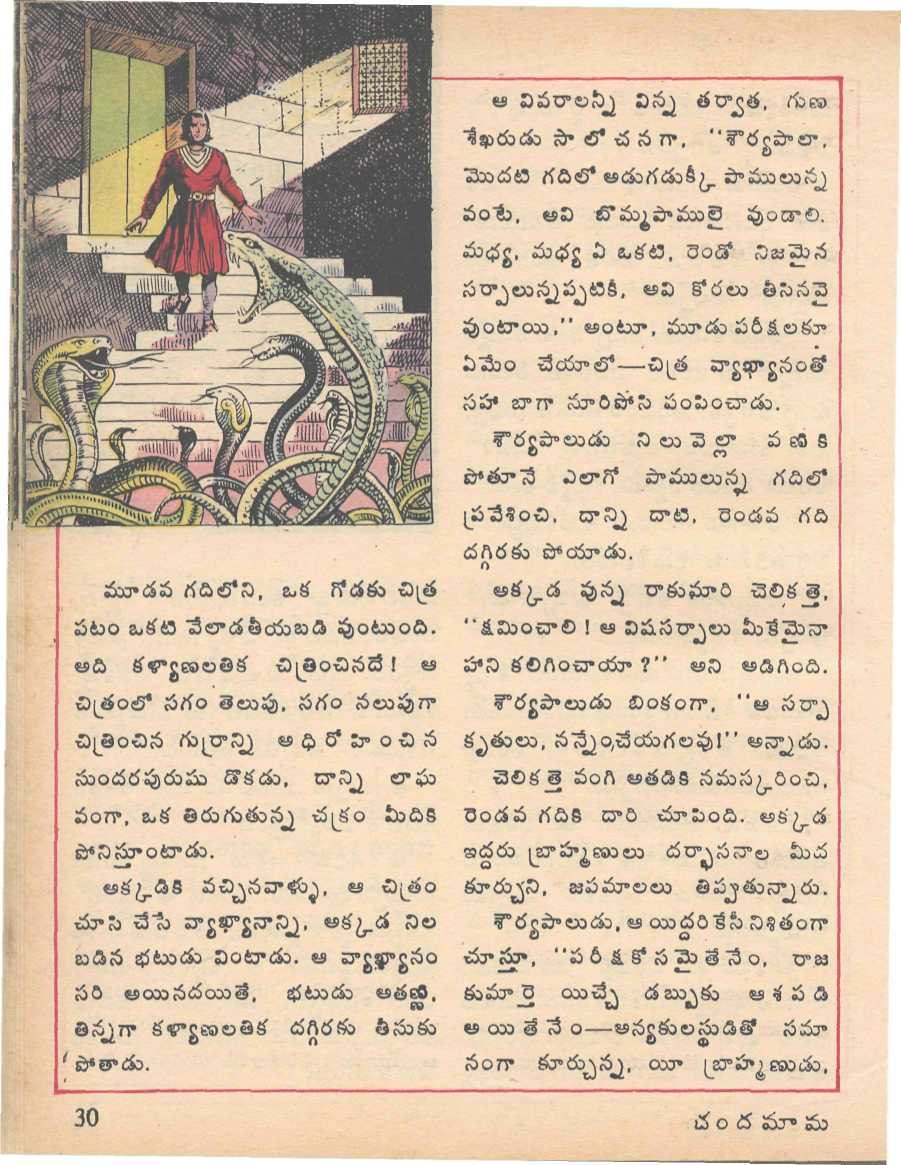 మూడవ గదిలోని, ఒక గోడకు చిత్ర
పటం ఒకటి వేలాడతీయబడి వుంటుంది.
అది కళ్యాణలతిక చిత్రించినదే! ఆ
చిత్రంలో సగం తెలుపు, సగం నలుపుగా
చిత్రించిన గుర్రాన్ని అధిరోహించిన
సుందరపురుషు డొకడు, దాన్ని లాఘ
వంగా, ఒక తిరుగుతున్న చక్రం మీదికి
పోనిస్తూంటాడు.
అక్కడికి వచ్చినవాళ్ళు, ఆ చిత్రం
చూసి చేసే వ్యాఖ్యానాన్ని, అక్కడ నిల
బడిన భటుడు వింటాడు. ఆ వ్యాఖ్యానం
సరి అయినదయితే, భటుడు అతణ్ణి,
తిన్నగా కళ్యాణలతిక దగ్గిరకు తీసుకు
పోతాడు.
ఆ వివరాలన్నీ విన్న తర్వాత, గుణ
శేఖరుడు సాలోచనగా, ‘‘శౌర్యపాలా,
మొదటి గదిలో అడుగడుక్కీ పాములున్న
వంటే, అవి బొమ్మపాములై వుండాలి.
మధ్య, మధ్య ఏ ఒకటి, రెండో నిజమైన
సర్పాలున్నప్పటికీ, అవి కోరలు తీసినవై
వుంటాయి,’’ అంటూ, మూడు పరీక్షలకూ
ఏమేం చేయాలో—చిత్ర వ్యాఖ్యానంతో
సహా బాగా నూరిపోసి పంపించాడు.
శౌర్యపాలుడు నిలువెల్లా వణికి
పోతూనే ఎలాగో పాములున్న గదిలో
ప్రవేశించి, దాన్ని దాటి, రెండవ గది
దగ్గిరకు పోయాడు.
అక్కడ వున్న రాకుమారి చెలికత్తె,
‘‘క్షమించాలి! ఆ విషసర్పాలు మీకేమైనా
హాని కలిగించాయా?’’ అని అడిగింది.
శౌర్యపాలుడు బింకంగా, ‘‘ఆ సర్పా
కృతులు, నన్నేంచేయగలవు!’’ అన్నాడు.
చెలికత్తె వంగి అతడికి నమస్కరించి,
రెండవ గదికి దారి చూపింది. అక్కడ
ఇద్దరు బ్రాహ్మణులు దర్భాసనాల మీద
కూర్చుని, జపమాలలు తిప్పుతున్నారు.
శౌర్యపాలుడు, ఆ యిద్దరికేసీ నిశితంగా
చూస్తూ, ‘‘పరీక్షకోసమైతేనేం, రాజ
కుమార్తె యిచ్చే డబ్బుకు ఆశపడి
అయితేనేం—అన్యకులస్థుడితో సమా
నంగా కూర్చున్న, యీ బ్రాహ్మణుడు,
30
చందమామ